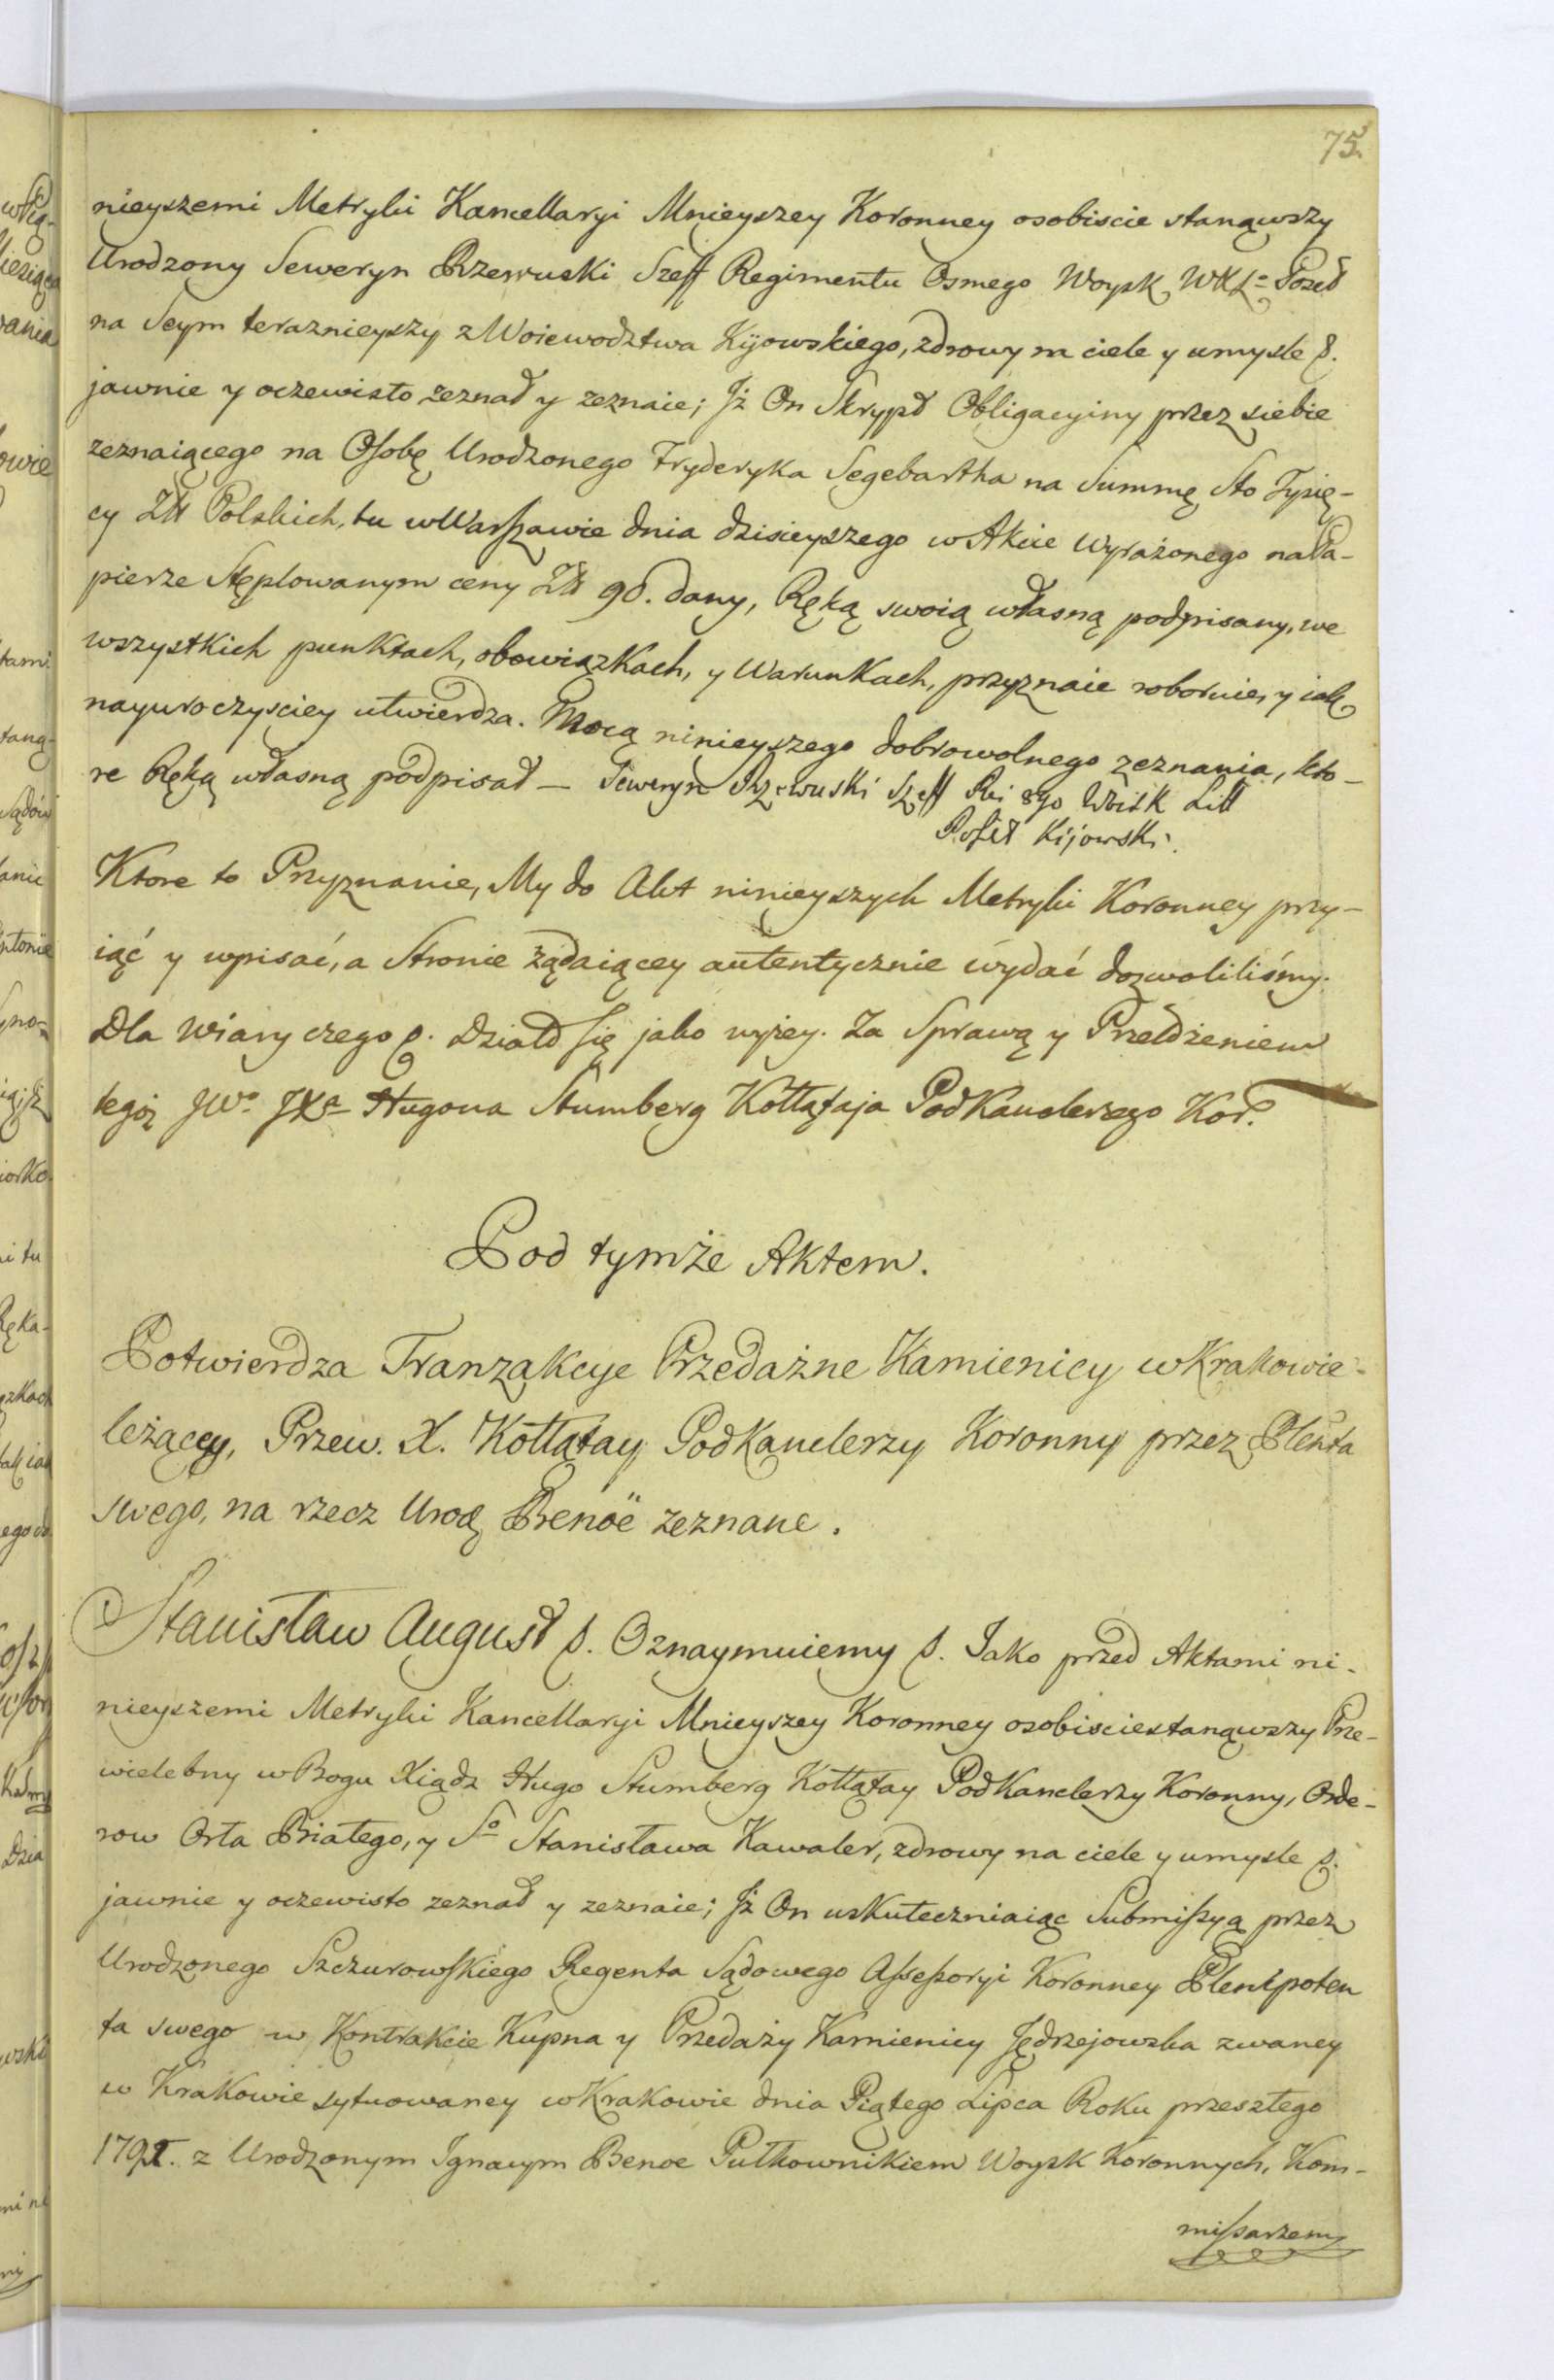 75.
nieyszemi Metryki Kancellaryi Mnieyszey Koronney osobiscie stanąwszy
Urodzony Seweryn Rzewuski Szeff Regimentu Osmego Woysk WXL° Poseł
na Seym teraznieyszy z Woiewodztwa Kijowskiego, zdrowy na ciele y umysle &.
jawnie y oczewisto zeznał y zeznaie; Jż On Skrypt Obligacyiny przez siebie
zeznaiącego na Osobę Urodzonego Fryderyka Segebartha na Summę Sto Tysię-
cy Złł Polskich, tu w Warszawie dnia dzisieyszego w Akcie wyrażonego na Pa-
pierze Stęplowanym ceny Złł 90. dany, Ręką swoią własną podpisany, we
wszystkich punktach, obowiązkach, y Warunkach, przyznaie roboruie, y iak
nayuroczysciey utwierdza. Mocą ninieyszego dobrowolnego zeznania, kto-
re Ręką własną podpisał — Seweryn Rzewuski Szeff Rei 8go Woisk Litt
Poseł Kijowski.
Ktore to Przyznanie, My do Akt ninieyszych Metryki Koronney przy-
iąć y wpisać, a Stronie żądaiącey autentycznie wydać dozwoliliśmy.
Dla Wiary czego &. Działo się jako wyżey. Za Sprawą y Przełożeniem
tegoż JWo JXa Hugona Stumberg Kołłątaja PodKanclerzego Kor.
Pod tymże Aktem.
Potwierdza Tranzakcye Przedażne Kamienicy w Krakowie
leżącey, Przew. X. Kołłątay PodKanclerzy Koronny przez Plenta
swego, na rzecz Urod Benöe zeznane.
Stanisław August &. Oznaymuiemy &. Jako przed Aktami ni-
nieyszemi Metryki Kancellaryi Mnieyszey Koronney osobiscie stanąwszy Prze-
wielebny w Bogu Xiądz Hugo Stumberg Kołłątay PodKanclerzy Koronny, Orde-
row Orła Białego, y S° Stanisława Kawaler, zdrowy na ciele y umysle &.
jawnie y oczewisto zeznał y zeznaie; Jż On uskuteczniaiąc Submissyą przez
Urodzonego Szczurowskiego Regenta Sądowego Assessoryi Koronney Plenipoten
ta swego w Kontrakcie Kupna y Przedaży Kamienicy Jędrzejowska zwaney
w Krakowie sytuowaney w Krakowie dnia Piątego Lipca Roku przeszłego
1791. z Urodzonym Ignacym Benoe Pułkownikiem Woysk Koronnych, Kom-
missarzem